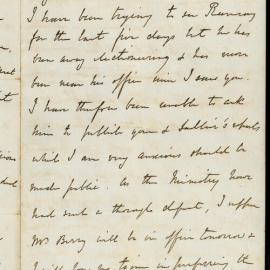 I have been trying to see Ramsay
for the last five days but he has
been away electioneering & has never
been near his office since I saw you.
I have therefore been unable to ask
him to publish your & Sadlier's
which I am very anxious should be
made public. As the Ministry have
had such a thorough defeat, I suppose
Mr Berry will be in office tomorrow &
I will lose no time in preferring the